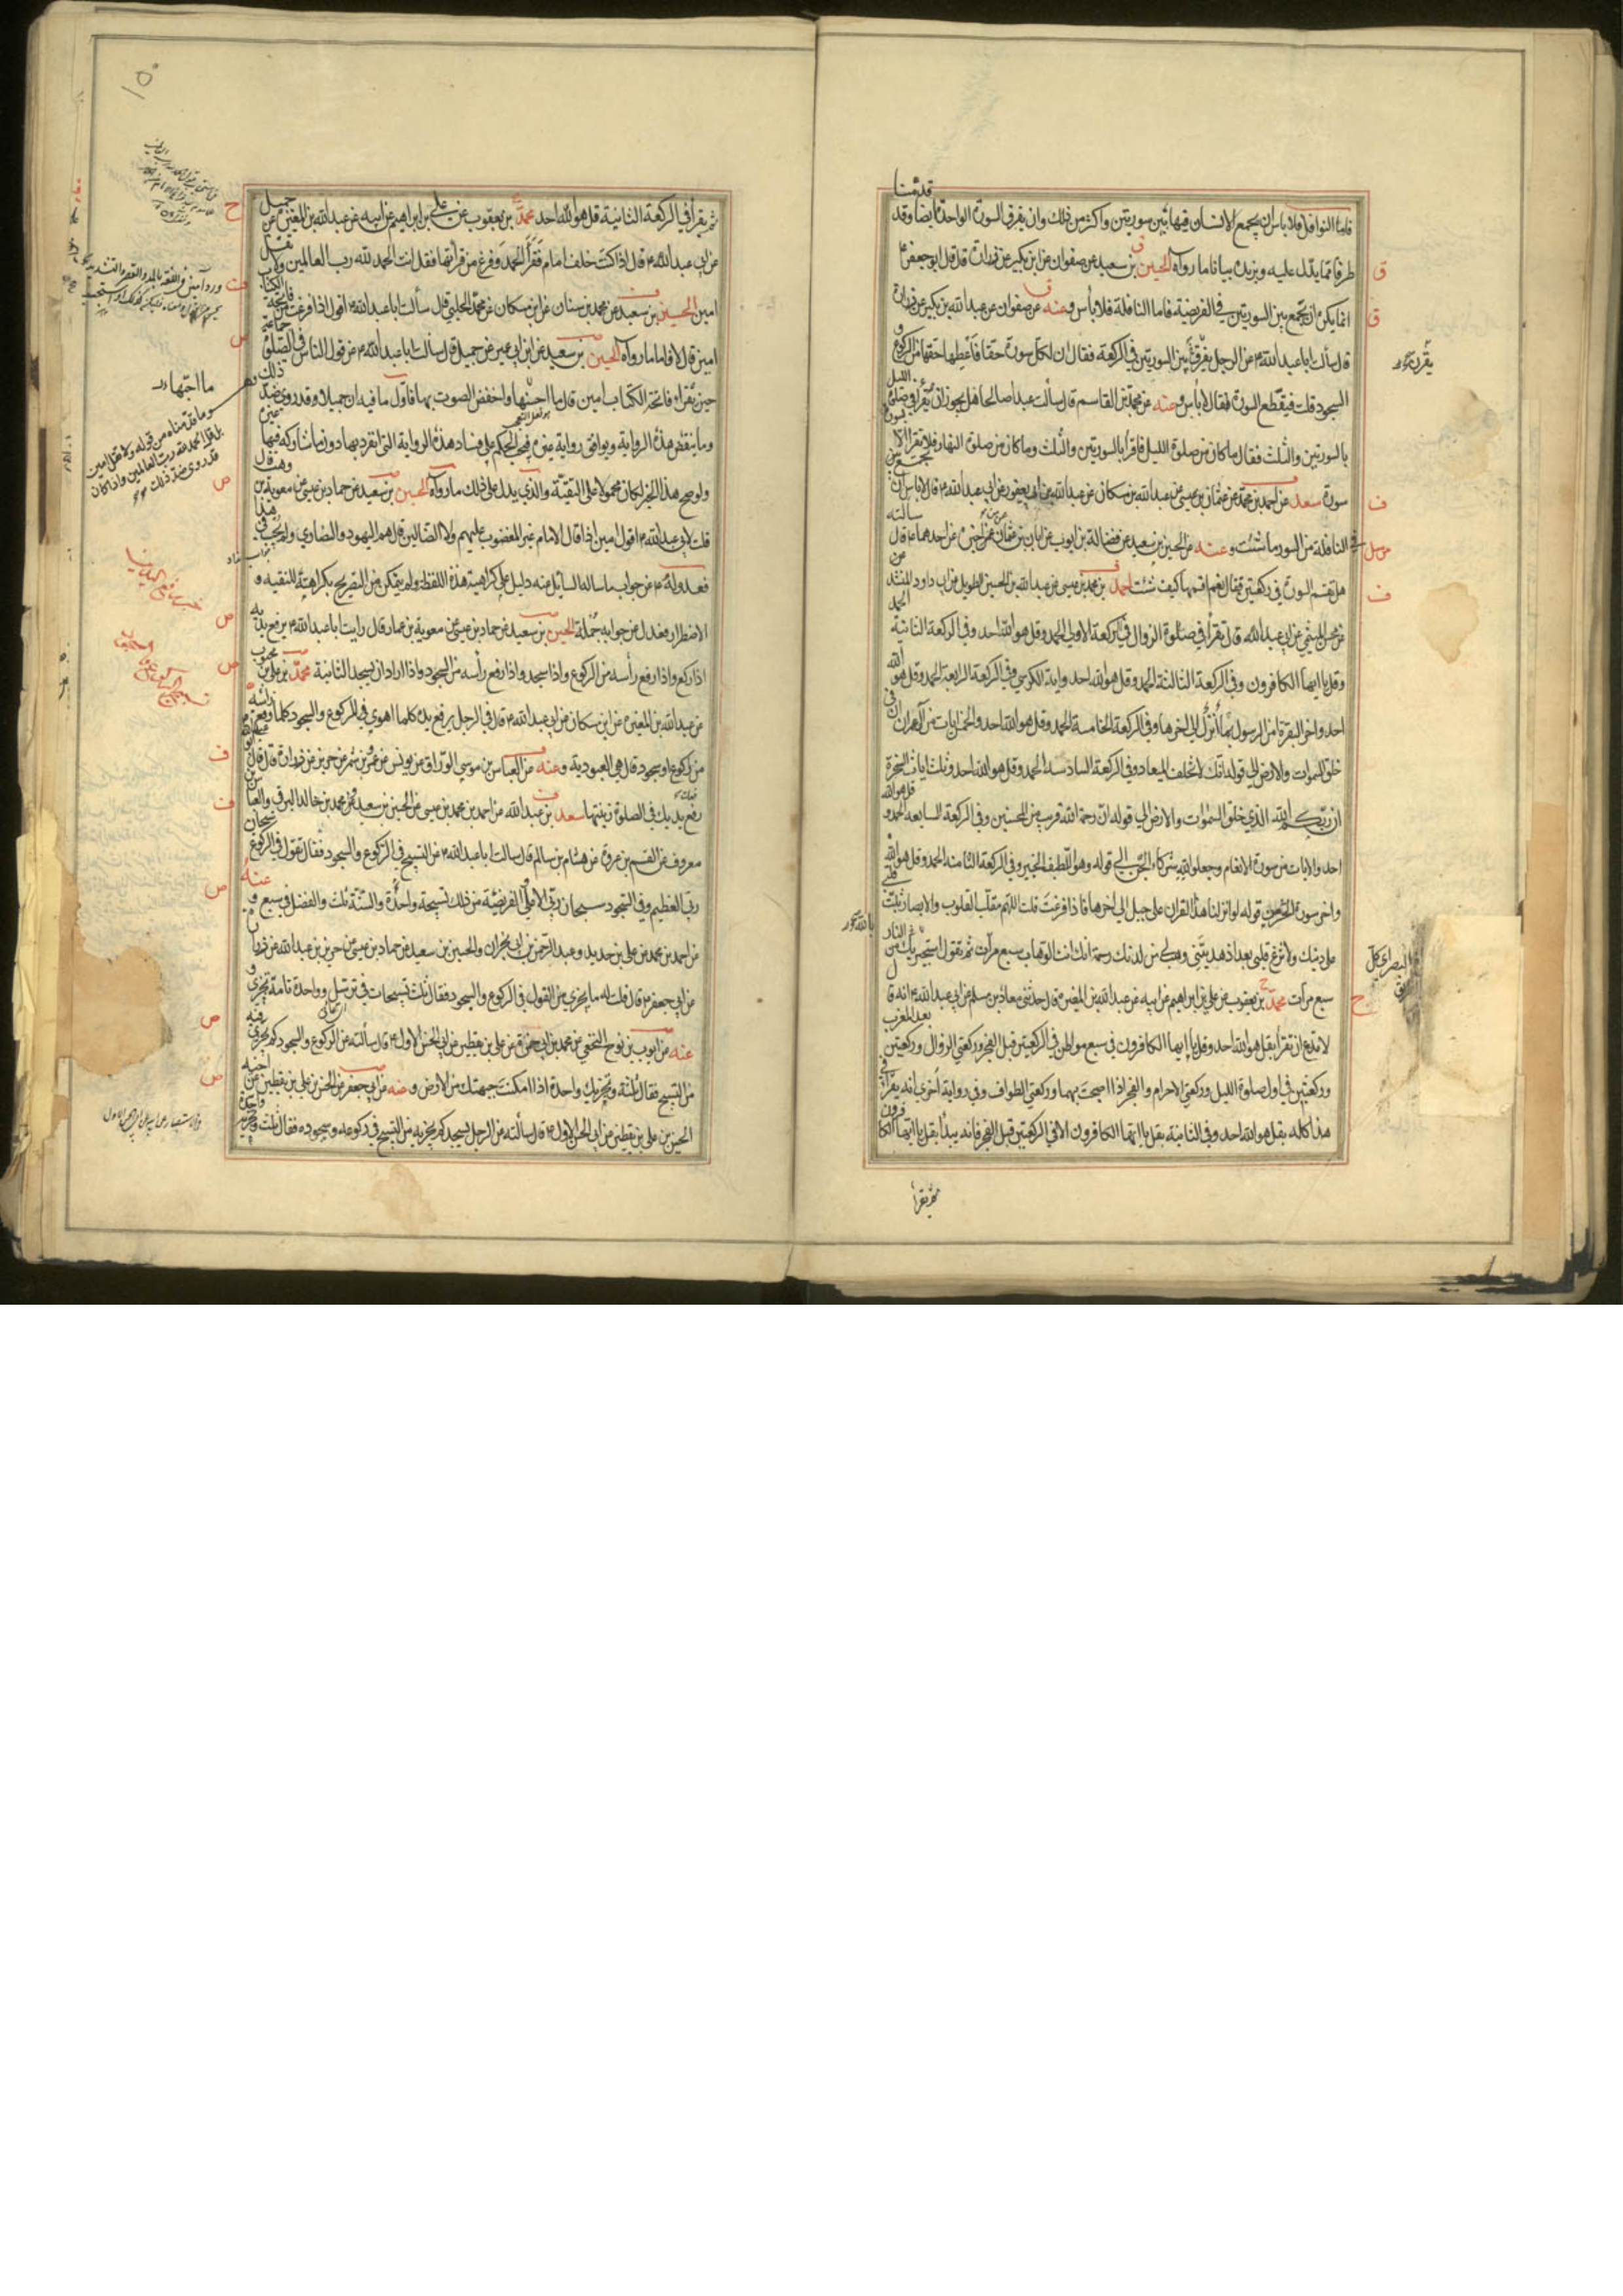 قدمنا
فاما النوافل فلا باس ان يجمع الانسان فيها بين سورتين واكثر من ذلك وان يفرق السورة الواحدة ايضا وقد
طرفا مما يدل عليه ويزيده بيانا ما رواه الحسين بن سعيد عن صفوان عن ابن بكير عن زرارة قال قال ابو جعفر ع
انما يكره ان يجمع بين السورتين في الفريضة فاما النافلة فلا بأس وعنه عن صفوان عن عبد الله بن بكير عن زرارة
قال سألت ابا عبد الله ع عن الرجل يقرن بين السورتين في الركعة فقال ان لكل سورة حقا فأعطها حقها من الركوع و
السجود قلت فيقطع السورة فقال لا بأس وعنه عن محمد بن القاسم قال سألت عبدا صالحا هل يجوز ان يقرأ في صلوة الليل
بالسورتين والثلث فقال ما كان من صلوة الليل فاقرأ بالسورتين والثلث وما كان من صلوة النهار فلا تقرأ الا بسورة
سورة سعد عن احمد بن محمد عن عثمان بن عيسى عن عبد الله بن مسكان عن عبد الله بن ابي يعفور عن ابي عبد الله ع قال لا باس ان تجمع
في النافلة من السور ما شئت وعنه عن الحسين بن سعيد عن فضالة بن ايوب عن ابان بن عثمان عمن اخبره عن احدهما ع قال سالته
هل تقسم السورة في ركعتين فقال نعم اقسمها كيف شئت احمد بن محمد بن عيسى عن عبد الله بن الحسين الطويل عن ابي داود المنشد عن
محسن الميثمي عن ابي عبد الله قال تقرأ في صلوة الزوال في الركعة الاولى الحمد وقل هو الله احد وفي الركعة الثانية الحمد
وقل يا ايها الكافرون وفي الركعة الثالثة الحمد وقل هو الله احد واية الكرسي وفي الركعة الرابعة الحمد وقل هو الله
احد واخر البقرة امن الرسول بما أنزل الى اخرها وفي الركعة الخامسة الحمد وقل هو الله احد والخمس ايات من آل عمران ان في
خلق السموات والارض الى قوله انك لا تخلف الميعاد وفي الركعة السادسة الحمد وقل هو الله احد وثلث ايات السخرة
ان ربكم الله الذي خلق السموات والارض الى قوله ان رحمة الله قريب من المحسنين وفي الركعة السابعة الحمد و قل هو الله
احد والايات من سورة الانعام وجعلوا لله شركاء الجن الى قوله وهو اللطيف الخبير وفي الركعة الثامنة الحمد وقل هو الله
واخر سورة الحشر من قوله لو انزلنا هذا القران على جبل الى اخرها فاذا فرغت قلت اللهم مقلب القلوب والابصار ثبت قلبي
على دينك ولا تزغ قلبي بعد اذ هديتني وهب لي من لدنك رحمة انك انت الوهاب سبع مرات ثم تقول استجير بك من النار
سبع مرات محمد بن يعقوب عن علي بن ابراهيم عن ابيه عن عبد الله بن المغيرة قال حدثني معاذ بن مسلم عن ابي عبد الله ع انه قال
لا تدع ان تقرأ بقل هو الله احد وقل يا ايها الكافرون في سبع مواطن في الركعتين قبل الفجر وركعتي الزوال وركعتين بعد المغرب
وركعتين في اول صلوة الليل وركعتي الاحرام والفجر اذا اصبحت بهما وركعتي الطواف وفي رواية اخرى انه يقرأ في
هذا كله بقل هو الله احد وفي الثانية بقل يا ايها الكافرون الا في الركعتين قبل الفجر فانه يبدأ بقل يا ايها الكافرون
ثم يقرأ
ثم يقرأ في الركعة الثانية قل هو الله احد محمد بن يعقوب عن علي بن ابراهيم عن ابيه عن عبد الله بن المغيرة عن جميل
عن ابي عبد الله ع قال اذا كنت خلف امام فقرأ الحمد وفرغ من قرائتها فقل انت الحمد لله رب العالمين ولا تقل
امين الحسين بن سعيد عن محمد بن سنان عن ابن مسكان عن محمد الحلبي قال سألت ابا عبد الله ع اقول اذا فرغت من فاتحة الكتاب
امين قال لا فاما ما رواه الحسين بن سعيد عن ابن ابي عمير عن جميل قال سألت ابا عبد الله ع عن قول الناس في الصلوة جماعة
حين تقرأ فاتحة الكتاب امين قال ما احسنها واخفض الصوت بها فاول ما فيه ان جميلا وقد روى ضد ذلك وهو
وما ينقض هذه الرواية ويوافق رواية غيره فيجب الحكم على فساد هذه الرواية التي انفرد بها دون ما شاركه فيها غيره
ولو صح هذا الخبر لكان محمولا على التقية والذي يدل على ذلك ما رواه الحسين بن سعيد عن حماد بن عيسى عن معوية بن وهب قال
قلت لابي عبد الله ع اقول امين اذا قال الامام غير المغضوب عليهم ولا الضالين قال هم اليهود والنصارى ولم يجب في هذا
فعدوله ع عن جواب ما ساله السائل عنه دليل على كراهية هذه اللفظة ولم يتمكن من التصريح بكراهيته للتقية و
الاضطرار فعدل عن جوابه جملة الحسين بن سعيد عن حماد بن عيسى عن معوية بن عمار قال رايت ابا عبد الله ع يرفع يديه
اذا ركع واذا رفع رأسه من الركوع واذا سجد واذا رفع رأسه من السجود واذا اراد ان يسجد الثانية محمد بن علي بن محبوب
عن عبد الله بن المغيرة عن ابن مسكان عن ابي عبد الله ع قال في الرجل يرفع يده كلما اهوى في الركوع والسجود وكلما رفع رأسه
من ركوع او سجود قال هي العبودية وعنه عن العباس بن موسى الوراق عن يونس عن عمرو بن شمر عن حريز عن زرارة قال قال ابو عبد الله
رفع يديك في الصلوة زينتها سعد بن عبد الله عن احمد بن محمد بن عيسى عن الحسين بن سعيد ومحمد بن خالد البرقي والعباس بن
معروف عن القسم بن عروة عن هشام بن سالم قال سالت ابا عبد الله ع عن التسبيح في الركوع والسجود فقال تقول في الركوع سبحان
ربي العظيم وفي السجود سبحان ربي الاعلى الفريضة من ذلك تسبيحة واحدة والسنة ثلث والفضل في سبع و عنه
عن احمد بن محمد عن علي بن حديد وعبد الرحمن بن ابي نجران والحسين بن سعيد عن حماد بن عيسى عن حريز بن عبد الله عن زرارة
عن ابي جعفر ع قال قلت له ما يجزي من القول في الركوع والسجود فقال ثلث تسبيحات في ترسل وواحدة تامة تجزي و
عنه عن ايوب بن نوح النخعي عن محمد بن ابي حمزة عن علي بن يقطين عن ابي الحسن الاول ع قال سألته عن الركوع والسجود كم يجزي فيه
من التسبيح فقال ثلثة وتجزيك واحدة اذا امكنت جبهتك من الارض وعنه عن ابي جعفر عن الحسن بن علي بن يقطين عن اخيه
الحسين بن علي بن يقطين عن ابي الحسن الاول ع قال سألته عن الرجل يسجد كم يجزيه من التسبيح في ركوعه وسجوده فقال ثلث وتجزيه واحدة